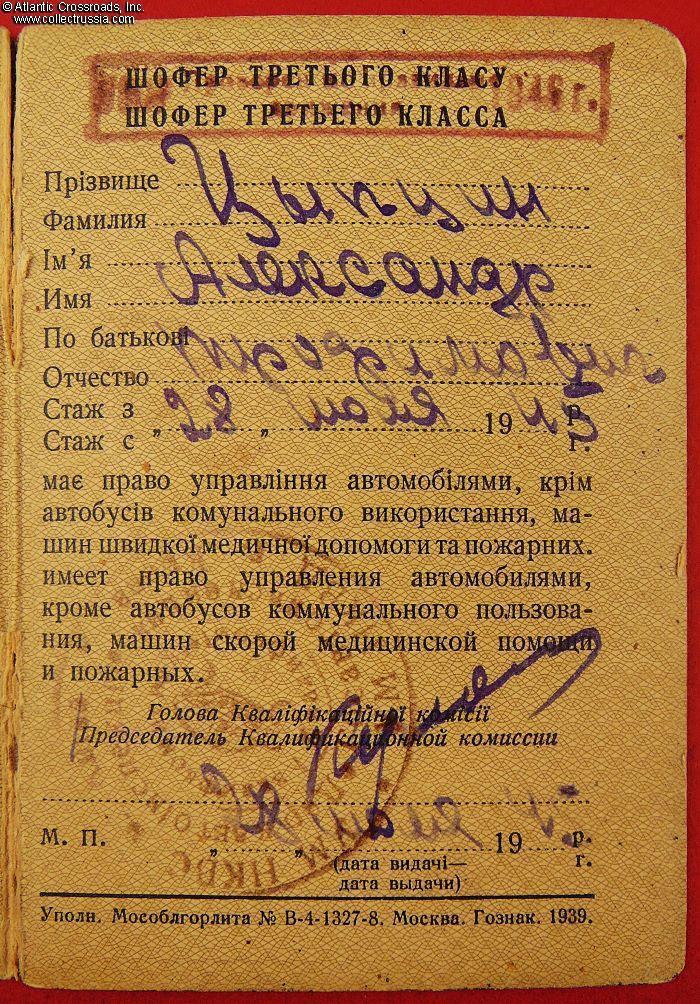 © Atlantic Crossroads, Inc.
www.collectrussia.com
ШОФЕР ТРЕТЬОГО КЛАСУ
ШОФЕР ТРЕТЬЕГО КЛАССА
Прізвище
Фамилия Цыпцин
Ім'я
Имя Александр
По батькові
Отчество
Стаж з
Стаж с „ 28 „ 19 45 р. г.
має право управління автомобілями, крім
автобусів комунального використання, ма-
шин швидкої медичної допомоги та пожарних.
имеет право управления автомобилями,
кроме автобусов коммунального пользова-
ния, машин скорой медицинской помощи
и пожарных.
Голова Кваліфікаційної комісії
Председатель Квалификационной комиссии
М. П. „ „ 19 р. г.
(дата видачі—
дата выдачи)
Уполн. Мособлгорлита № В-4-1327-8. Москва. Гознак. 1939.